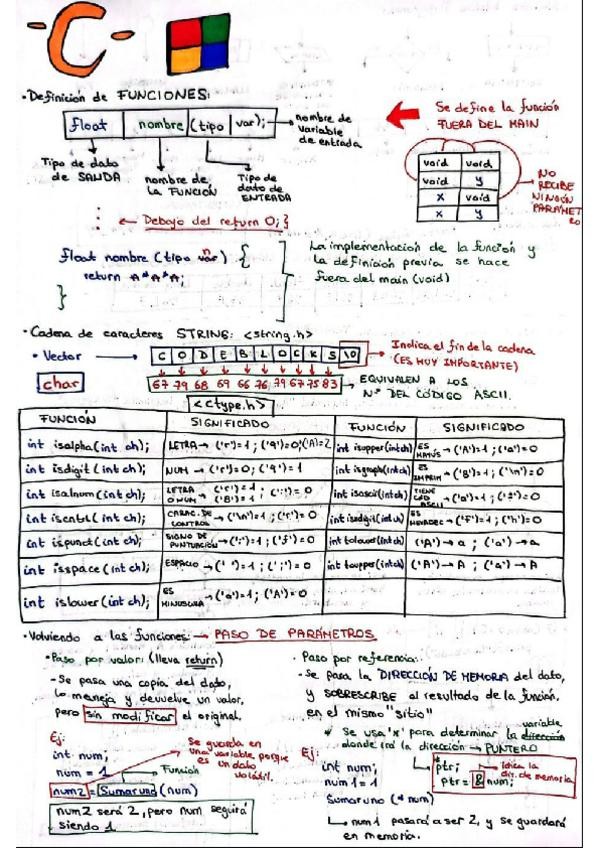 -C-
• Definición de FUNCIONES:
float nombre (tipo var); → nombre de variable de entrada
Tipo de dato de SALIDA
nombre de la FUNCIÓN
Tipo de dato de ENTRADA
Se define la función
FUERA DEL MAIN
void void
void y
x void
x y
NO RECIBE NINGÚN PARÁMETRO
← Debajo del return 0; }
float nombre (tipo var) {
return A*A*A;
}
La implementación de la función y
la definición previa se hace
fuera del main (void)
• Cadena de caracteres STRING: <string.h>
• Vector → C O D E B L O C K S \0
Indica el fin de la cadena
(ES MUY IMPORTANTE)
char
67 79 68 69 66 76 79 67 75 83 → EQUIVALEN A LOS
Nº DEL CÓDIGO ASCII.
<ctype.h>
FUNCIÓN SIGNIFICADO FUNCIÓN SIGNIFICADO
int isalpha(int ch); LETRA → ('r')=1; ('9')=0; (A)=2 int isupper(int ch) ES MAYÚS → ('A')=1; ('a')=0
int isdigit(int ch); NUM → ('r')=0; ('9')=1 int isgraph(int ch) ES IMPRIM → ('B')=1; ('\n')=0
int isalnum(int ch); LETRA O NUM → ('r')=1 ('8')=1; (':')=0 int isascii(int ch) TIENE COD ASCII → ('a')=1;
int iscntrl(int ch); CARAC. DE CONTROL → ('\n')=1; ('r')=0 int isxdigit(int ch) ES HEXADEC → ('F')=1; ('h')=0
int ispunct(int ch); SIGNO DE PUNTUACIÓN → (';')=1; ('f')=0 int tolower(int ch) ('A') → a; ('a') → a
int isspace(int ch); ESPACIO → (' ')=1; (';')=0 int toupper(int ch) ('A') → A; ('a') → A
int islower(int ch); ES MINÚSCULA → ('a')=1; ('A')=0
• Volviendo a las funciones: → PASO DE PARÁMETROS
• Paso por valor: (lleva return)
- Se pasa una copia del dato,
lo maneja y devuelve un valor,
pero sin modificar el original.
Ej:
int num;
num = 1
num2 = Sumaruno (num)
Función
Se guarda en
una variable, porque
es un dato
volátil.
num2 será 2, pero num seguirá
siendo 1
• Paso por referencia:
- Se pasa la DIRECCIÓN DE MEMORIA del dato,
y SOBRESCRIBE al resultado de la función.
en el mismo "sitio"
* Se usa '*' para determinar la variable dirección
donde irá la dirección → PUNTERO
*ptr;
ptr = &num;
Indica la
dir. de memoria
Ej:
int num;
num1 = 1
Sumaruno (* num)
num1 pasará a ser 2, y se guardará
en memoria.